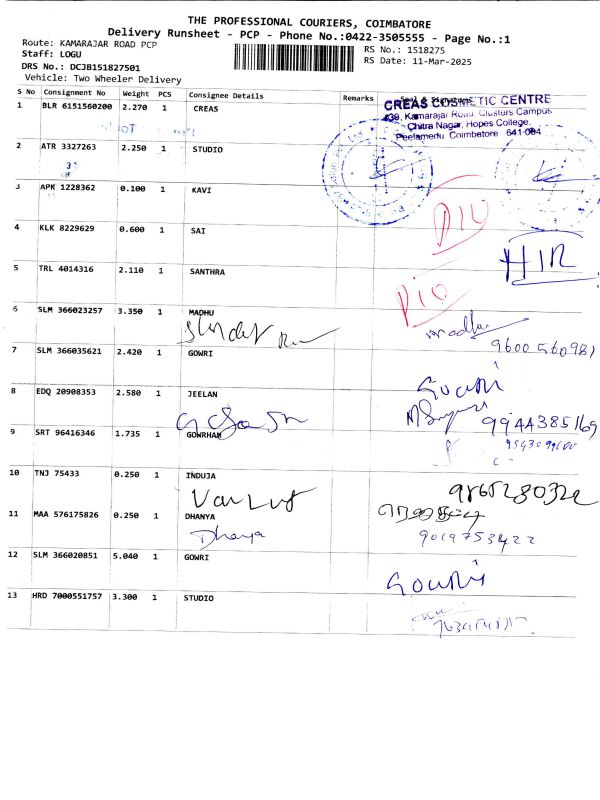 THE PROFESSIONAL COURIERS, COIMBATORE
Delivery Runsheet - PCP - Phone No.:0422-3505555 - Page No.:1
Route: KAMARAJAR ROAD PCP
RS No.: 1518275
Staff: LOGU
RS Date: 11-Mar-2025
DRS No.: DCJB151827501
Vehicle: Two Wheeler Delivery
S No Consignment No Weight PCS Consignee Details Remarks Seal & Signature
1 BLR 6151560200 2.270 1 CREAS
CREAS COSMETIC CENTRE
439, Kamarajar Road Clusters Campus
Chitra Nagar, Hopes College,
Peelamedu Coimbatore 641 004
2 ATR 3327263 2.250 1 STUDIO
3 APK 1228362 0.100 1 KAVI
4 KLK 8229629 0.600 1 SAI
5 TRL 4014316 2.110 1 SANTHRA
6 SLM 366023257 3.350 1 MADHU
madhu
9600560981
7 SLM 366035621 2.420 1 GOWRI
Gowri
8 EDQ 20908353 2.580 1 JEELAN
9944385169
9 SRT 96416346 1.735 1 GOWRHAM
10 TNJ 75433 0.250 1 INDUJA
11 MAA 576175826 0.250 1 DHANYA
Dhanya
9019753422
12 SLM 366020851 5.040 1 GOWRI
Gowri
13 HRD 7000551757 3.300 1 STUDIO